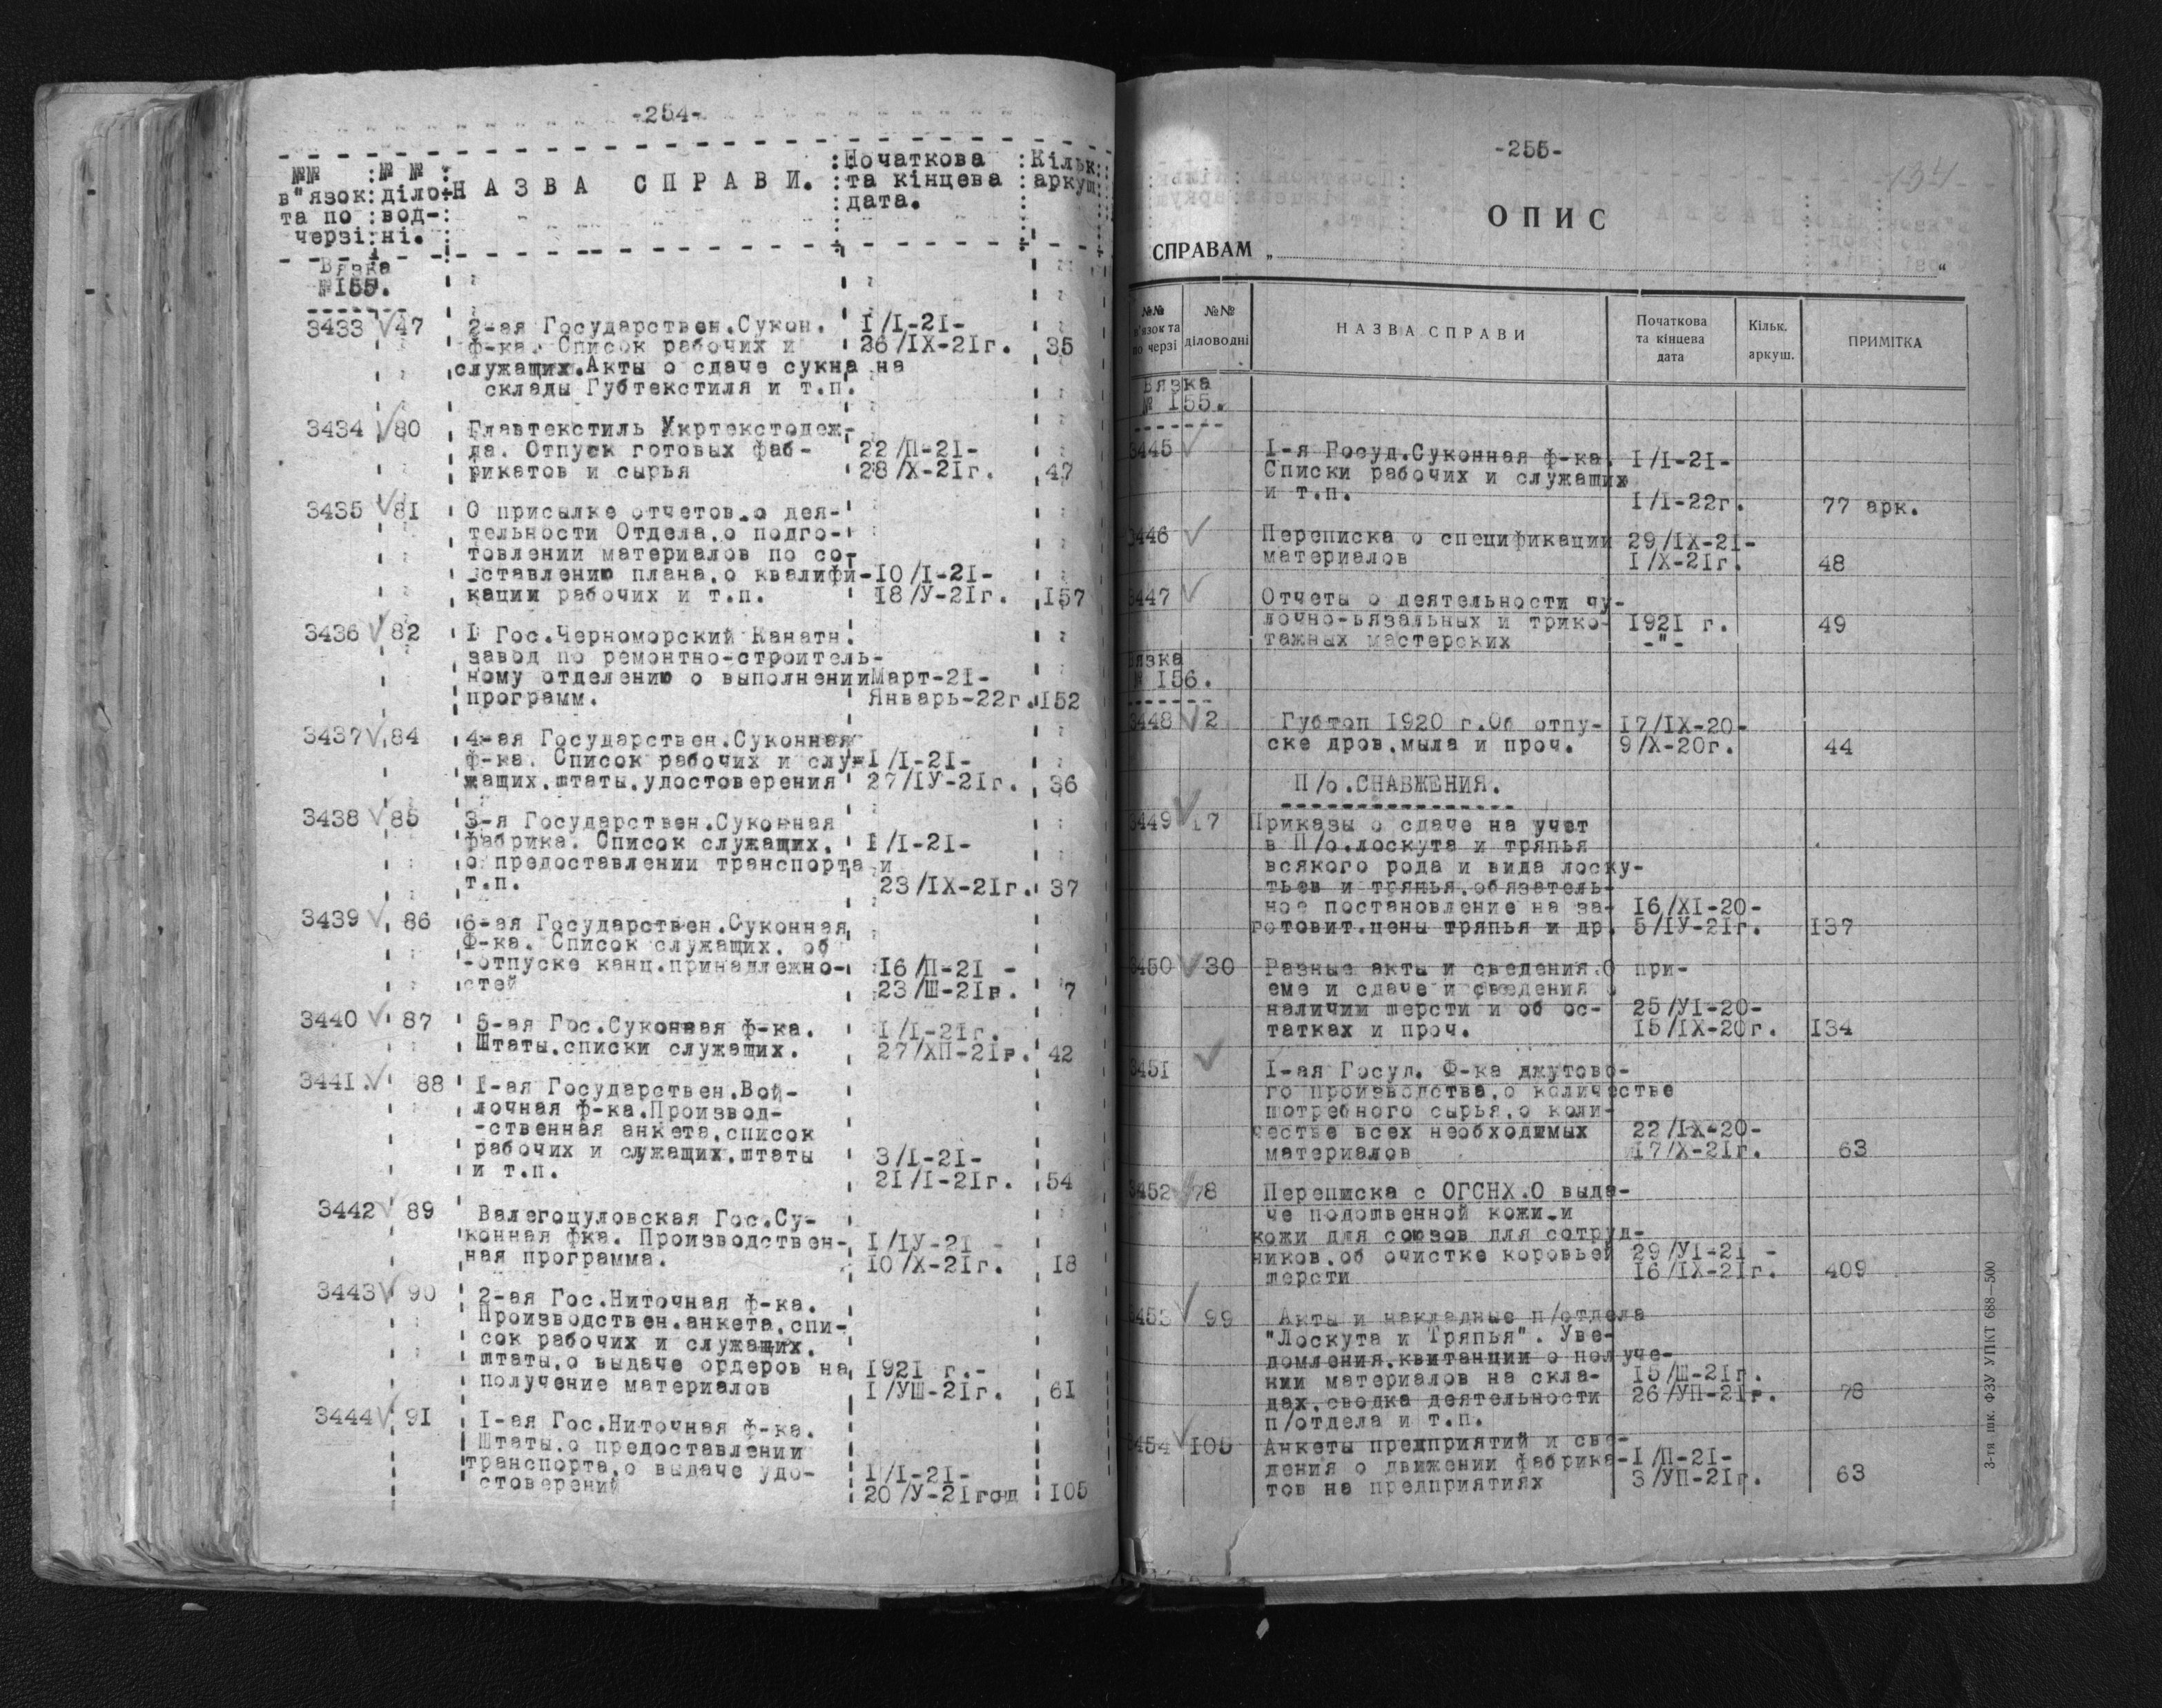 -254-
№№ :№ № : :Початкова :Кільк:
в"язок:діло-:Н А З В А С П Р А В И. :та кінцева :аркуш:
та по :вод-: :дата.
черзі:ні.
Вязка
№155.
3433 √47 2-ая Государствен.Сукон. I/I-21-
ф-ка. Список рабочих и 26/IX-21г. 35
служащих.Акты о сдаче сукна на
склады Губтекстиля и т.п.
3434 √80 Главтекстиль Укртекстодеж-
да. Отпуск готовых фаб- 22/П-21-
рикатов и сырья 28/X-21г. 47
3435 √81 О присылке отчетов.о дея-
тельности Отдела.о подго-
товлении материалов по со-
ставлению плана.о квалифи-10/I-21-
кации рабочих и т.п. 18/У-21г. 157
3436 √82 I Гос.Черноморский Канатн.
завод по ремонтно-строитель-
ному отделению о выполнении Март-21-
программ. Январь-22г.152
3437√.84 4-ая Государствен.Суконная
ф-ка. Список рабочих и слу- I/I-21-
жащих.штаты.удостоверения 27/IУ-21г. 36
3438 √85 3-я Государствен.Суконная
фабрика. Список служащих. I/I-21-
о предоставлении транспорта и
т.п. 23/IX-21г. 37
3439 √ 86 6-ая Государствен.Суконная
Ф-ка. Список служащих. об
-отпуске канц.принадлежно- 16/П-21 -
стей 23/Ш-21г. 7
3440 √ 87 5-ая Гос.Суконная ф-ка. I/I-21г.
Штаты.списки служащих. 27/ХП-21г. 42
3441.√ 88 I-ая Государствен.Вой-
лочная ф-ка.Производ-
-ственная анкета.список
рабочих и служащих.штаты 3/I-21-
и т.п. 21/I-21г. 54
3442√ 89 Валегоцуловская Гос.Су-
конная фка. Производствен- I/IУ-21 -
ная программа. 10/X-21г. 18
3443√ 90 2-ая Гос.Ниточная ф-ка.
Производствен.анкета.спи-
сок рабочих и служащих.
штаты.о выдаче ордеров на 1921 г.-
получение материалов I/УШ-21г. 61
3444√ 91 I-ая Гос.Ниточная ф-ка.
Штаты.о предоставлении
транспорта.о выдаче удо- I/I-21-
стоверений 20/У-21год 105
-255-
134
ОПИС
СПРАВАМ „ “
№№ в'язок та по черзі №№ діловодні НАЗВА СПРАВИ Початкова та кінцева дата Кільк. аркуш. ПРИМІТКА
Вязка
№ 155.
3445 √ I-я Госуд.Суконная ф-ка. I/I-21-
Списки рабочих и служащих
и т.п. I/I-22г. 77 арк.
3446 √ Переписка о спецификации 29/IX-21-
материалов I/X-21г. 48
3447 √ Отчеты о деятельности чу-
лочно-вязальных и трико- 1921 г. 49
тажных мастерских -"-
Вязка
№ 156.
3448 √ 2 Губтоп 1920 г.Об отпу- 17/IX-20-
ске дров.мыла и проч. 9/X-20г. 44
П/о.СНАБЖЕНИЯ.
3449 √ 17 Приказы о сдаче на учет
в П/о.лоскута и тряпья
всякого рода и вида лоску-
тьев и тряпья.обязатель-
ное постановление на за- 16/XI-20-
готовит.цены тряпья и др. 5/IУ-21г. 137
3450 √ 30 Разные акты и сведения.О при-
еме и сдаче и сведения о
наличии шерсти и об ос- 25/УI-20-
татках и проч. 15/IX-20г. 134
3451 √ I-ая Госуд. Ф-ка джутово-
го производства.о количестве
потребного сырья.о коли-
честве всех необходимых 22/IX-20-
материалов 17/X-21г. 63
3452 √78 Переписка с ОГСНХ.О выда-
че подошвенной кожи.и
кожи для союзов для сотруд-
ников.об очистке коровьей 29/УI-21 -
шерсти 16/IX-21г. 409
3453 √ 99 Акты и накладные п/отдела
"Лоскута и Тряпья". Уве-
домления.квитанции о получе-
нии материалов на скла- 15/Ш-21г.
дах.сводка деятельности 26/УП-21г. 78
п/отдела и т.п.
3454 √105 Анкеты предприятий и све-
дения о движении фабрика-I/П-21-
тов на предприятиях 3/УП-21г. 63
3-тя шк. ФЗУ УПКТ 688—500